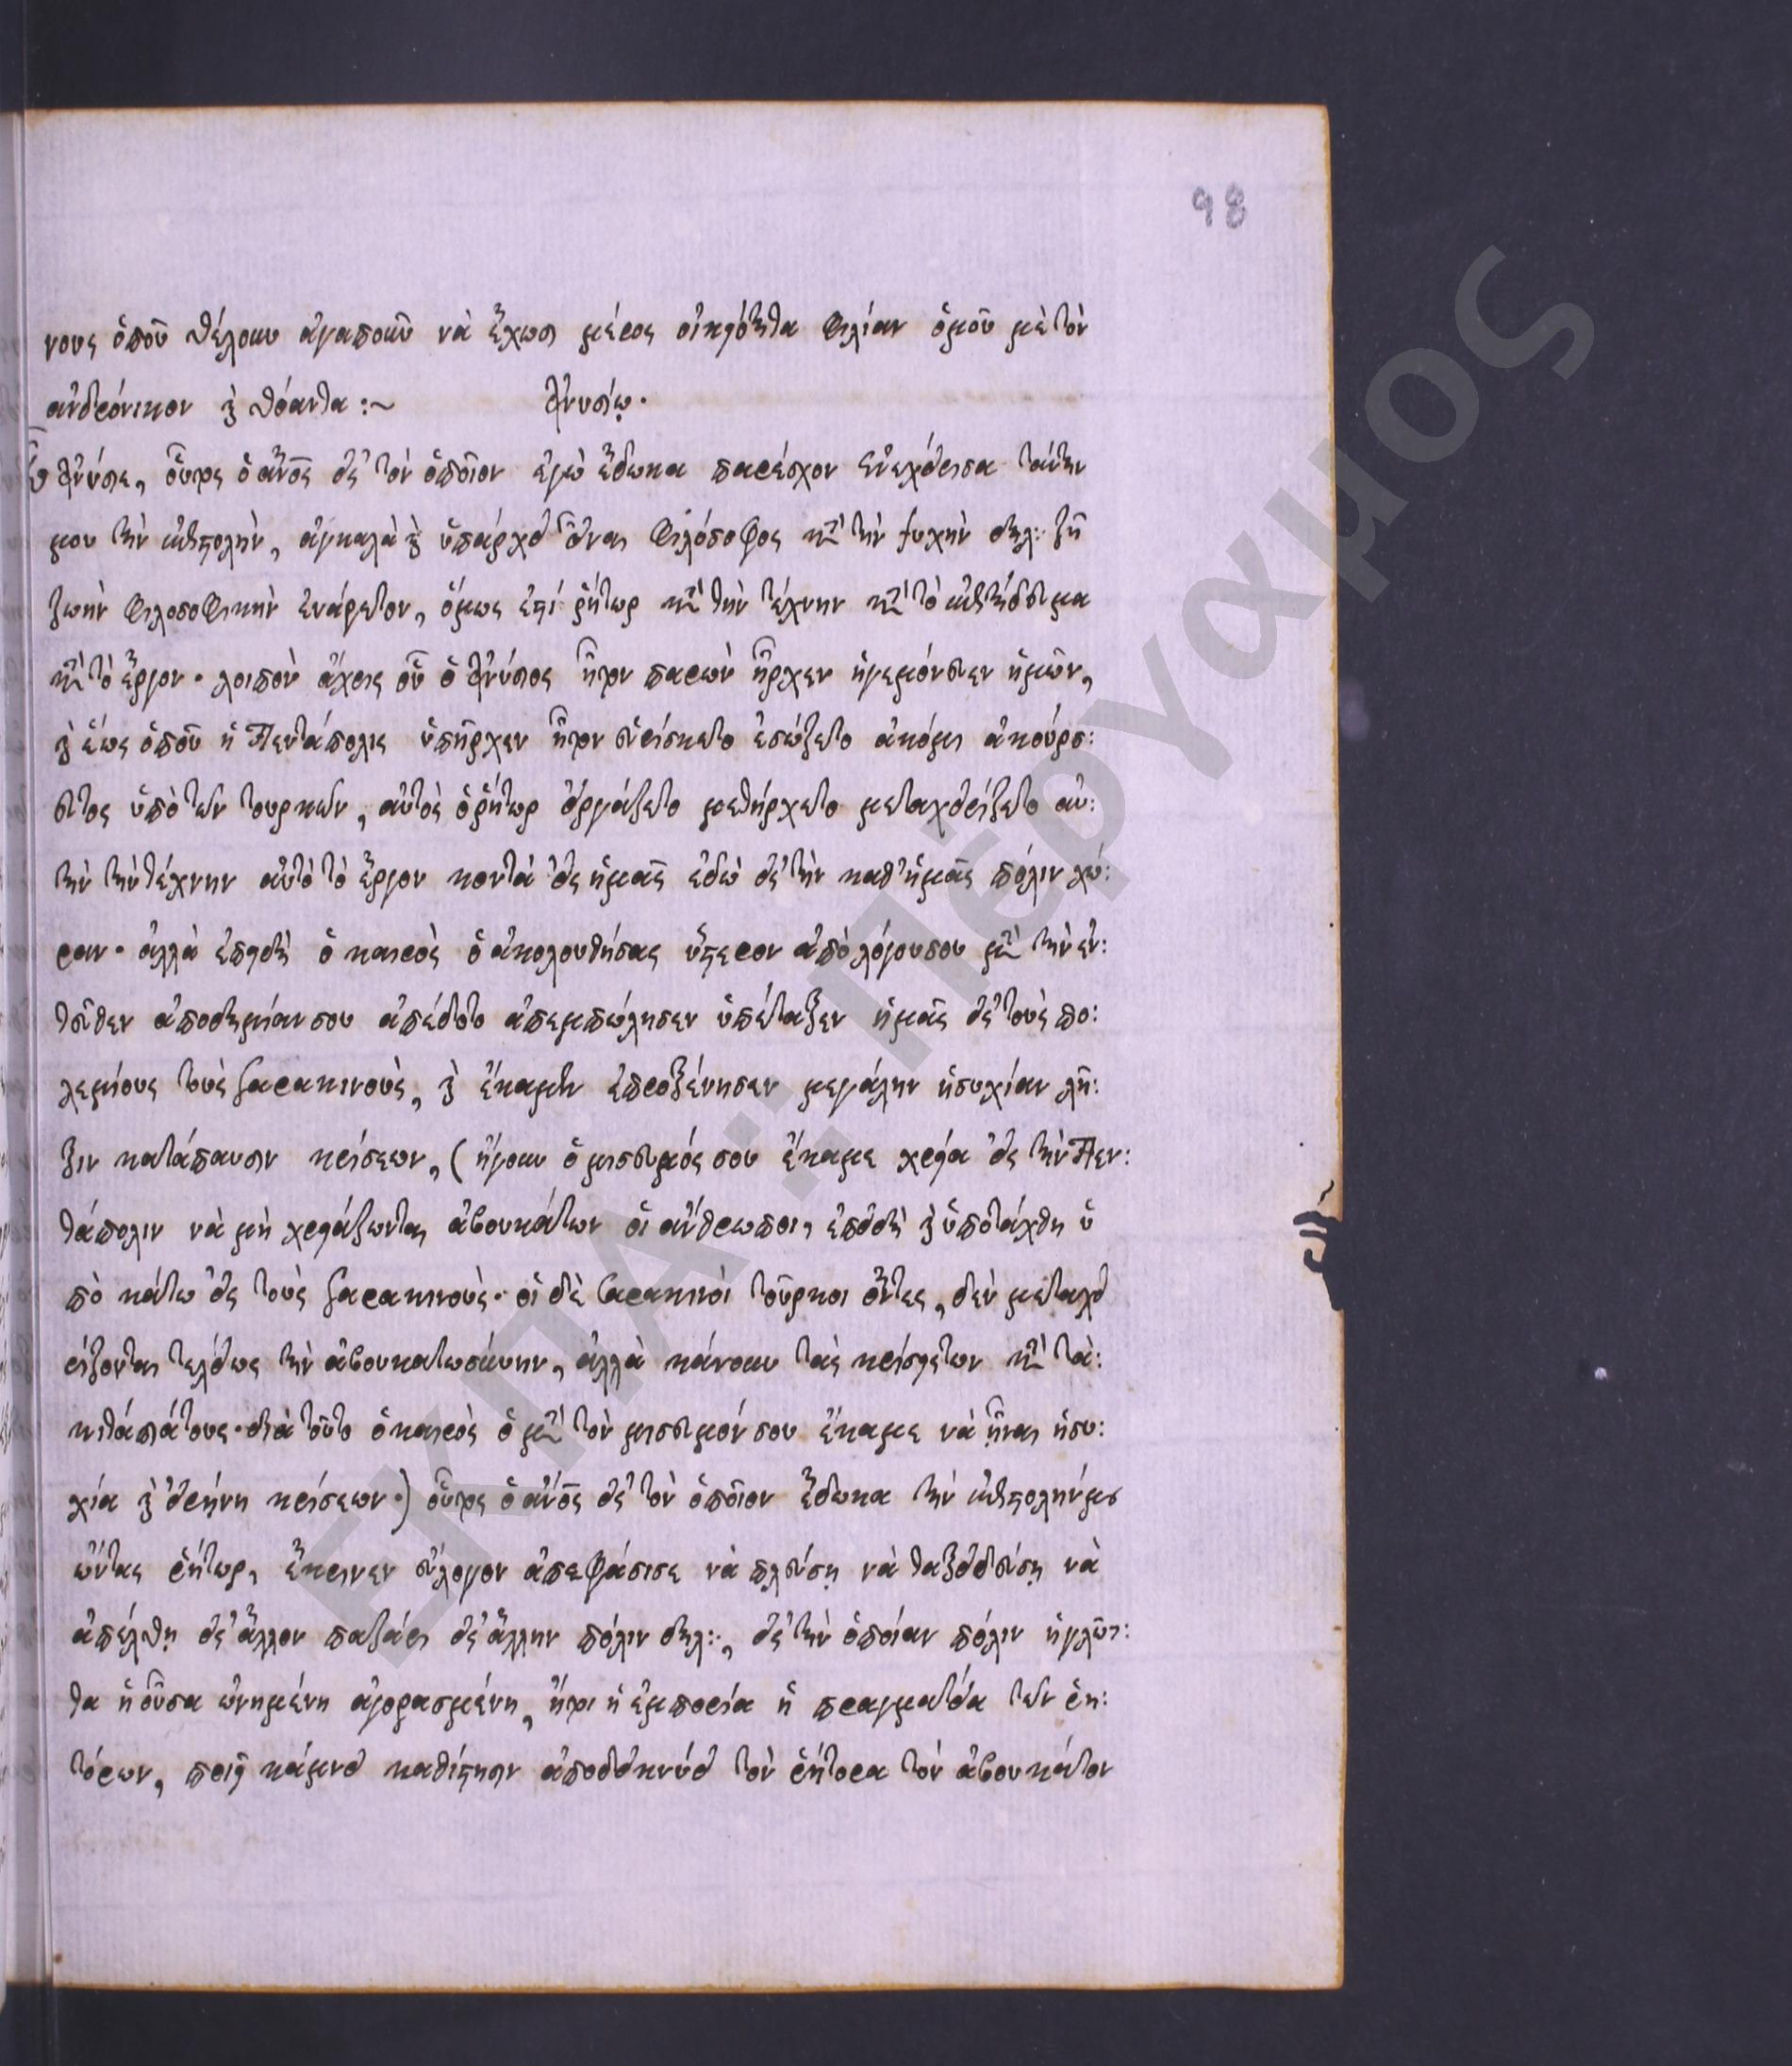 98
νους ὁποῦ θέλουν ἀγαποῦν νὰ ἔχωσι μέρος οἰκειότητα φιλίαν ὁμοῦ μὲ τὸν
ἀνδρόνικον καὶ θόαντα :~ Ἀνυσίῳ.
Ὦ Ἀνύσιε, οὗτος ὁ ἀνος εἰς τὸν ὁποῖον ἐγὼ ἔδωκα παρέσχον ἐνεχείρισα ταύτην
μου τὴν ἐπιστολὴν, ἀγκαλὰ καὶ ὑπάρχει εἶναι φιλόσοφος κατὰ τὴν ψυχὴν δηλ: ζῇ
ζωὴν φιλοσοφικὴν ἐνάρετον, ὅμως ἐστί ῥήτωρ κατὰ τὴν τέχνην κατὰ τὸ ἐπιτήδευμα
κατὰ τὸ ἔργον. λοιπὸν ἄχρις οὗ ὁ Ἀνύσιος ἦτον παρὼν ἦρχεν ἡγεμόνευεν ἡμῶν,
καὶ ἕως ὁποῦ ἡ Πεντάπολις ὑπῆρχεν ἦτον εὑρίσκετο ἐσώζετο ἀκόμι ἀκούρσ:
ευτος ὑπὸ τῶν τουρκῶν, αὐτὸς ὁ ῥήτωρ εἰργάζετο μετήρχετο μεταχειρίζετο αὐ:
τὴν τὴν τέχνην αὐτὸ τὸ ἔργον κοντά εἰς ἡμᾶς ἐδὼ εἰς τὴν καθ' ἡμᾶς πόλιν χώ:
ραν. ἀλλὰ ἐπειδὴ ὁ καιρὸς ὁ ἀκολουθήσας ὕστερον ἀπὸ λόγουσου μετὰ τὴν ἐν:
τεῦθεν ἀποδημίαν σου ἀπέδοτο ἀπεμπώλησεν ὑπέταξεν ἡμᾶς εἰς τοὺς πο:
λεμίους τοὺς σαρακινοὺς, καὶ ἔκαμεν ἐπροξένησεν μεγάλην ἡσυχίαν λῆ:
ξιν κατάπαυσιν κρίσεων, (ἤγουν ὁ μισευμός σου ἔκαμε χρεία εἰς τὴν Πεν:
τάπολιν νὰ μὴ χρειάζωνται ἀβουκάτων οἱ ἄνθρωποι, ἐπειδὴ καὶ ὑποτάχθη ὑ
πὸ κάτω εἰς τοὺς σαρακινοὺς. οἱ δὲ σαρακινοὶ τοῦρκοι ὄντες, δὲν μεταχει
ρίζονται τελείως τὴν ἀβουκατωσύνην, ἀλλὰ κάνουν τὰς κρίσεις των κατὰ τὰ:
κιτάπιά τους. διὰ τοῦτο ὁ καιρὸς ὁ μετὰ τὸν μισευμόν σου ἔκαμε νὰ ᾖναι ἡσυ:
χία καὶ εἰρήνη κρίσεων.) οὗτος ὁ ἀνος εἰς τὸν ὁποῖον ἔδωκα τὴν ἐπιστολήν μου
ὤντας ῥήτωρ, ἔκρινεν εὔλογον ἀπεφάσισε νὰ πλεύσῃ νὰ ταξειδεύσῃ νὰ
ἀπέλθῃ εἰς ἄλλον παζάρι εἰς ἄλλην πόλιν δηλ:, εἰς τὴν ὁποίαν πόλιν ἡ γλῶτ:
τα ἡ οὖσα ὠνημένη ἀγορασμένη, ἤτοι ἡ ἐμπορία ἡ πραγματεία τῶν ῥη:
τόρων, ποιεῖ κάμνει καθίστησιν ἀποδεικνύει τὸν ῥήτορα τὸν ἀβουκάτον
ΕΚΠΑ: Πέργαμος